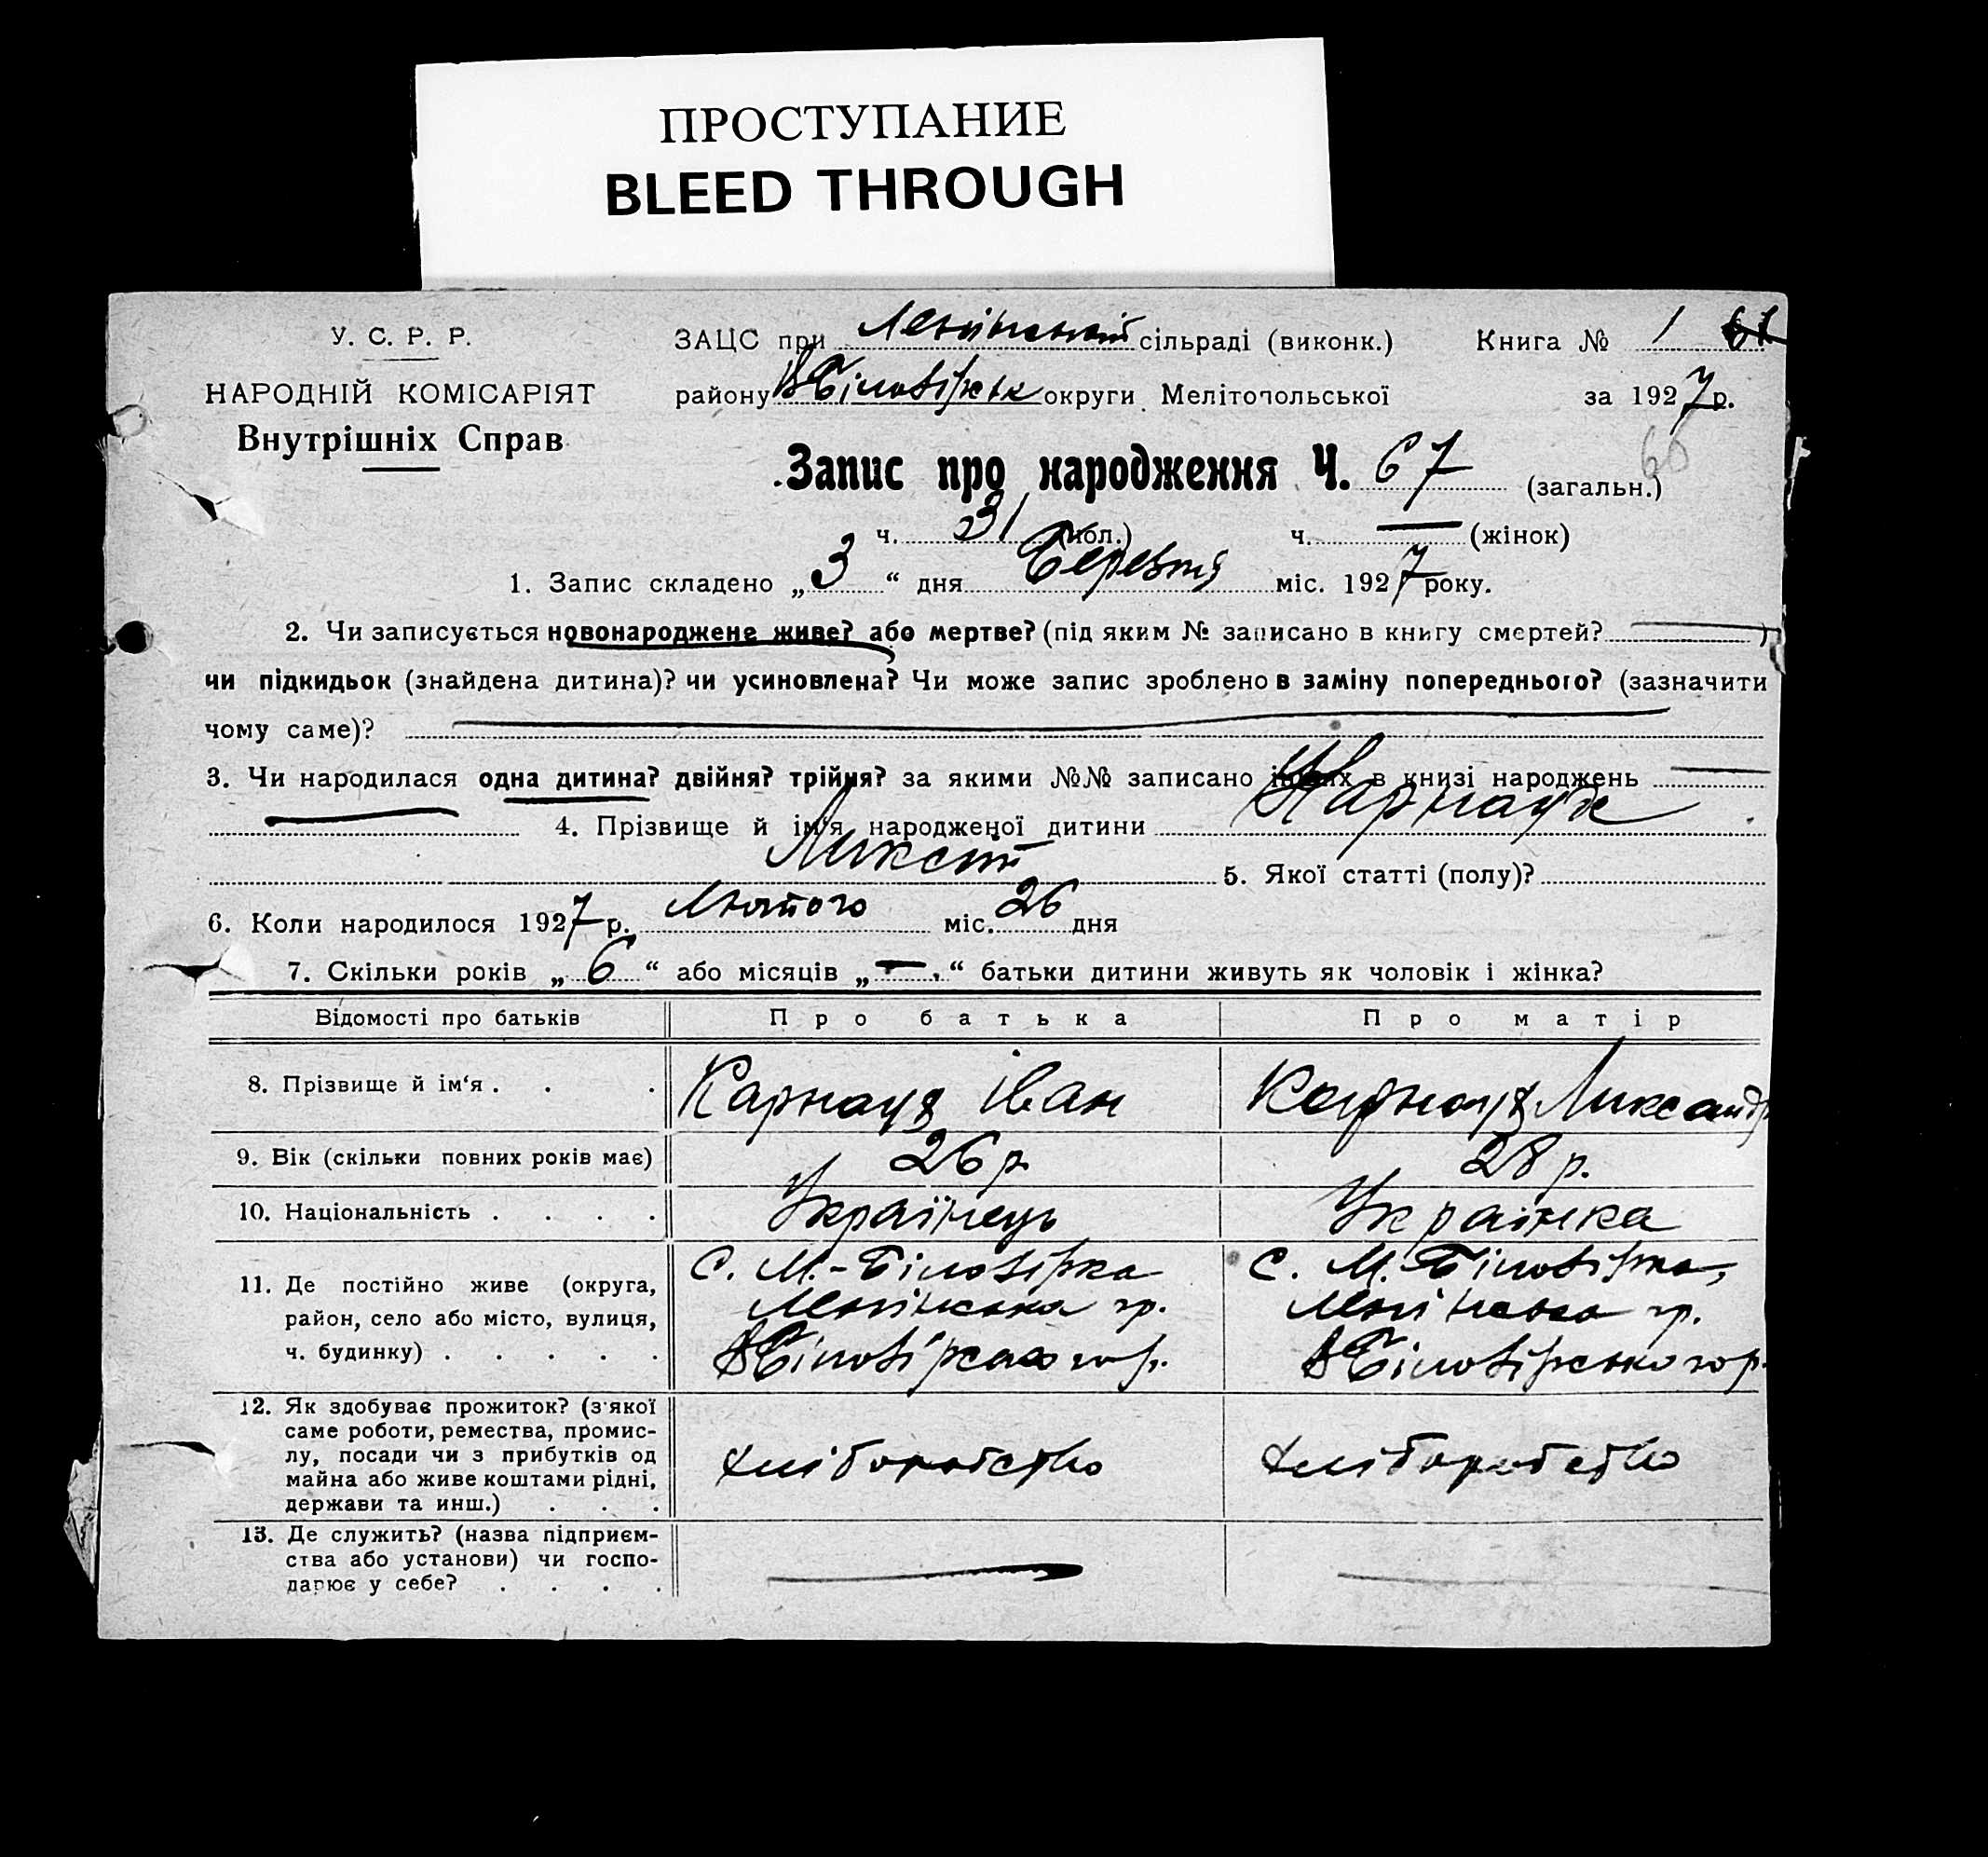 ПРОСТУПАНИЕ
BLEED THROUGH
У. С. Р. Р.
НАРОДНІЙ КОМІСАРІЯТ
Внутрішніх Справ
ЗАЦС при Ленінській сільраді (виконк.) Книга № 1
району В Біловірськ округи Мелітопольської за 1927 р.
Запис про народження Ч. 67 (загальн.) 66
ч. 31 (чол.) ч. — (жінок)
1. Запис складено „3“ дня Березня міс. 1927 року.
2. Чи записується новонароджене живе? або мертве? (під яким № записано в книгу смертей? — )
чи підкидьок (знайдена дитина)? чи усиновлена? Чи може запис зроблено в заміну попереднього? (зазначити
чому саме)? —
3. Чи народилася одна дитина? двійня? трійня? за якими №№ записано інших в книзі народжень —
— 4. Прізвище й ім'я народженої дитини Карнаух
Ликсій 5. Якої статті (полу)?
6. Коли народилося 1927 р. Лютого міс. 26 дня
7. Скільки років „6“ або місяців „—“ батьки дитини живуть як чоловік і жінка?
Відомості про батьків Про батька Про матір
8. Прізвище й ім'я . . . Карнаух Іван Карнаух Ликсандр
9. Вік (скільки повних років має) 26 р. 28 р.
10. Національність . . . . Українець Українка
11. Де постійно живе (округа, район, село або місто, вулиця, ч. будинку) . . . . .
С. М.-Біловірка
Ленінська гр.
В Біловірског р.
С. М. Біловірка,
Ленінська гр.
В Біловірського р.
12. Як здобуває прожиток? (з якої
саме роботи, ремества, промис-
лу, посади чи з прибутків од
майна або живе коштами рідні,
держави та инш.) . . .
хліборобство хліборобство
13. Де служить? (назва підприєм-
ства або установи) чи госпо-
дарює у себе? . . . .